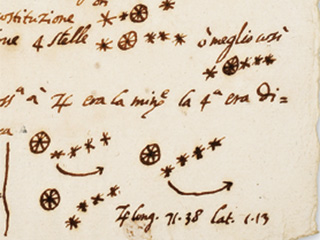 costituzione
ne 4 stelle ò meglio così
era la min.e la 4a era di=
♃ long. 71.38 lat. 1.13